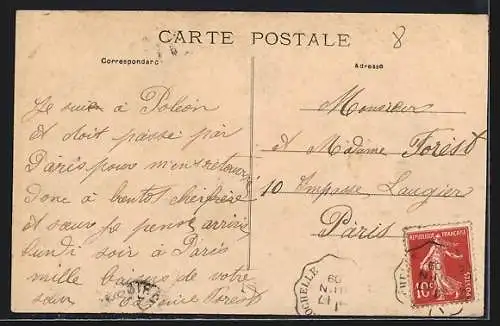 CARTE POSTALE
8
Correspondance
Adresse
Je suis à
et doit passé par
Paris pour m'en retourné
donc à bientot cher frère
et sœur je pense arrivé
lundi soir à Paris
mille baisers de votre
sœur Forest
Monsieur
et Madame Forest
10 Impasse Laugier
Paris
REPUBLIQUE FRANÇAISE
10c
POSTES
OCHELLE
09